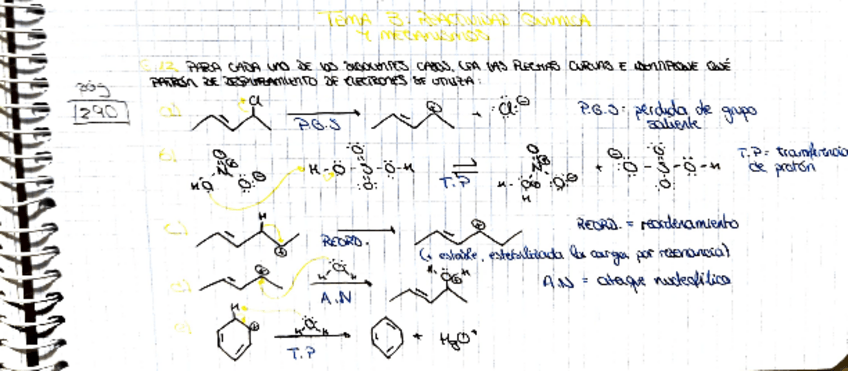 TEMA 3. REACTIVIDAD QUÍMICA
Y MECANISMOS
PARA CADA UNO DE LOS SIGUIENTES CASOS, LEA LAS FLECHAS CURVAS E IDENTIFIQUE QUÉ
PATRÓN DE DESPLAZAMIENTO DE ELECTRONES SE UTILIZA:
pág
1290
a) Cl P.G.S + Cl⊖ P.G.S: pérdida de grupo
saliente
b) T.P + T.P = transferencia
de protón
c) H REORD. REORD. = reordenamiento
(+ estable, estabilizada la carga por resonancia)
T A.N A.N = ataque nucleofílico
e) H T.P + H₃O⁺